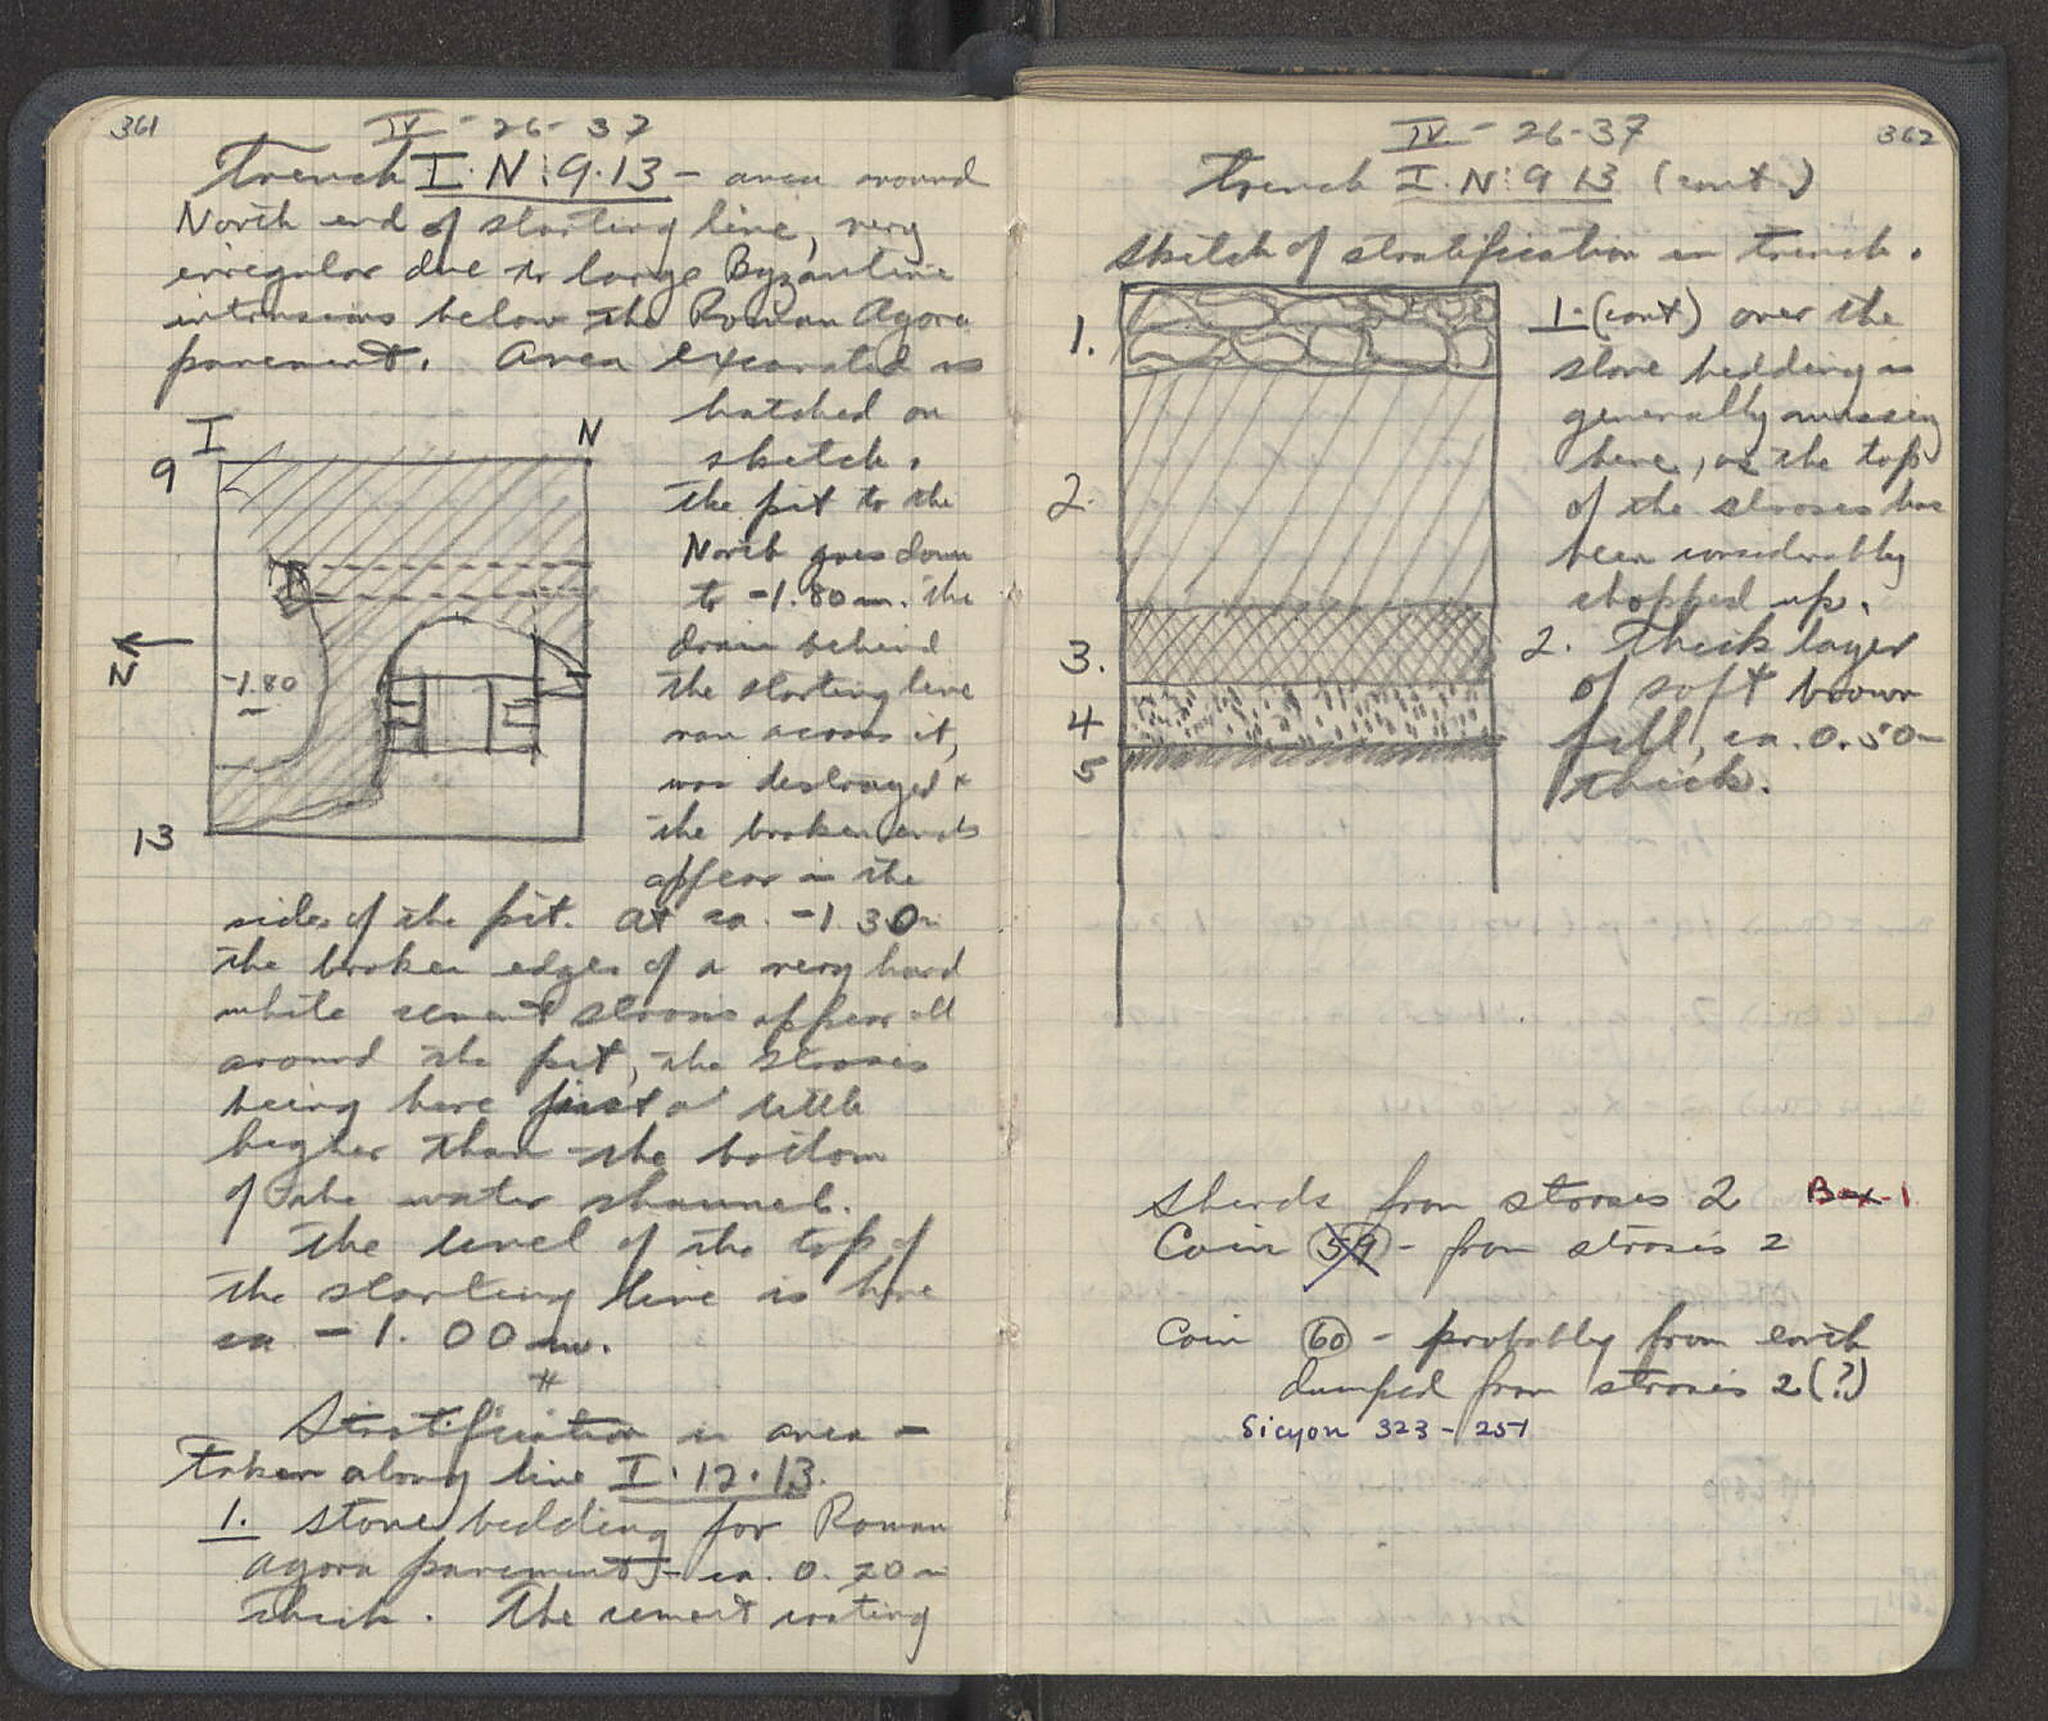 361
IV - 26 - 37
Trench I·N:9·13 - area around
North end of starting line, very
irregular due to large Byzantine
intrusions below the Roman Agora
pavement. Area excavated is
hatched on
sketch.
The pit to the
North goes down
to -1.80 m. The
drain behind
the starting line
ran across it,
was destroyed +
the broken ends
appear in the
sides of the pit. At ca. -1.30 m
the broken edges of a very hard
white cement strosis appear all
around the pit, the strosis
being here just a little
higher than the bottom
of the water channel.
The level of the top of
the starting line is here
ca -1.00 m.
#
Stratification in area -
Taken along line I·12·13.
1. Stone bedding for Roman
agora pavement - ca. 0.20 m
thick. The cement coating
I
N
9
N
-1.80
13
362
IV - 26-37
Trench I·N:9 13 (cont.)
Sketch of stratification in trench.
1.
2.
3.
4
5
1. (cont) over the
stone bedding is
generally missing
here, as the top
of the strosis has
been considerably
chopped up.
2. Thick layer
of soft brown
fill, ca. 0.50 m
thick.
Sherds from strosis 2 Box 1
Coin 59 - from strosis 2
Coin 60 - probably from earth
dumped from strosis 2 (?)
Sicyon 323-251